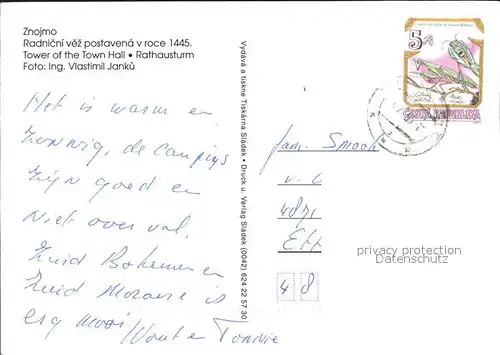 Znojmo
Radniční věž postavená v roce 1445.
Tower of the Town Hall • Rathausturm
Foto: Ing. Vlastimil Janků
Het is warm en
zonnig, de campings
zijn goed en
niet over vol.
Zuid Bohemen en
Zuid Moravie is
erg mooi
Wout en
Vydává a tiskne Tiskárna Sládek • Druck u. Verlag Sládek (0042) 624 22 57 30
5
Fam. Smook
Ett
48
privacy protection
Datenschutz